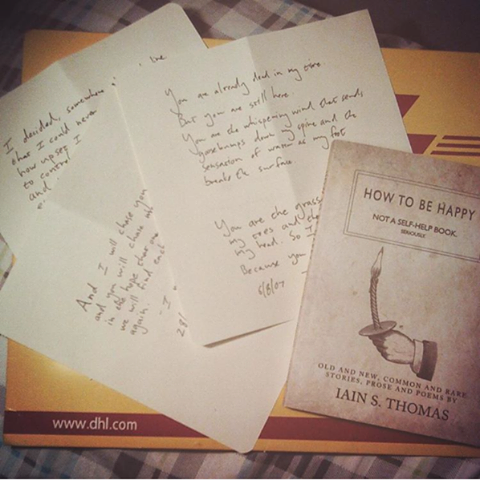 I decided, somewhere
that I could never
how upset I
to control
and
And I will chase you
and you will chase me
in the hope that one
we will find each
again
You are already dead in my eyes
But you are still here
You are the whispering wind that sends
goosebumps down my spine and the
sensation of water as my foot
breaks the surface
You are the grass
my eyes and the
my head. So I
Because you
6/8/07
HOW TO BE HAPPY
NOT A SELF-HELP BOOK.
SERIOUSLY.
OLD AND NEW, COMMON AND RARE
STORIES, PROSE AND POEMS BY
IAIN S. THOMAS
www.dhl.com